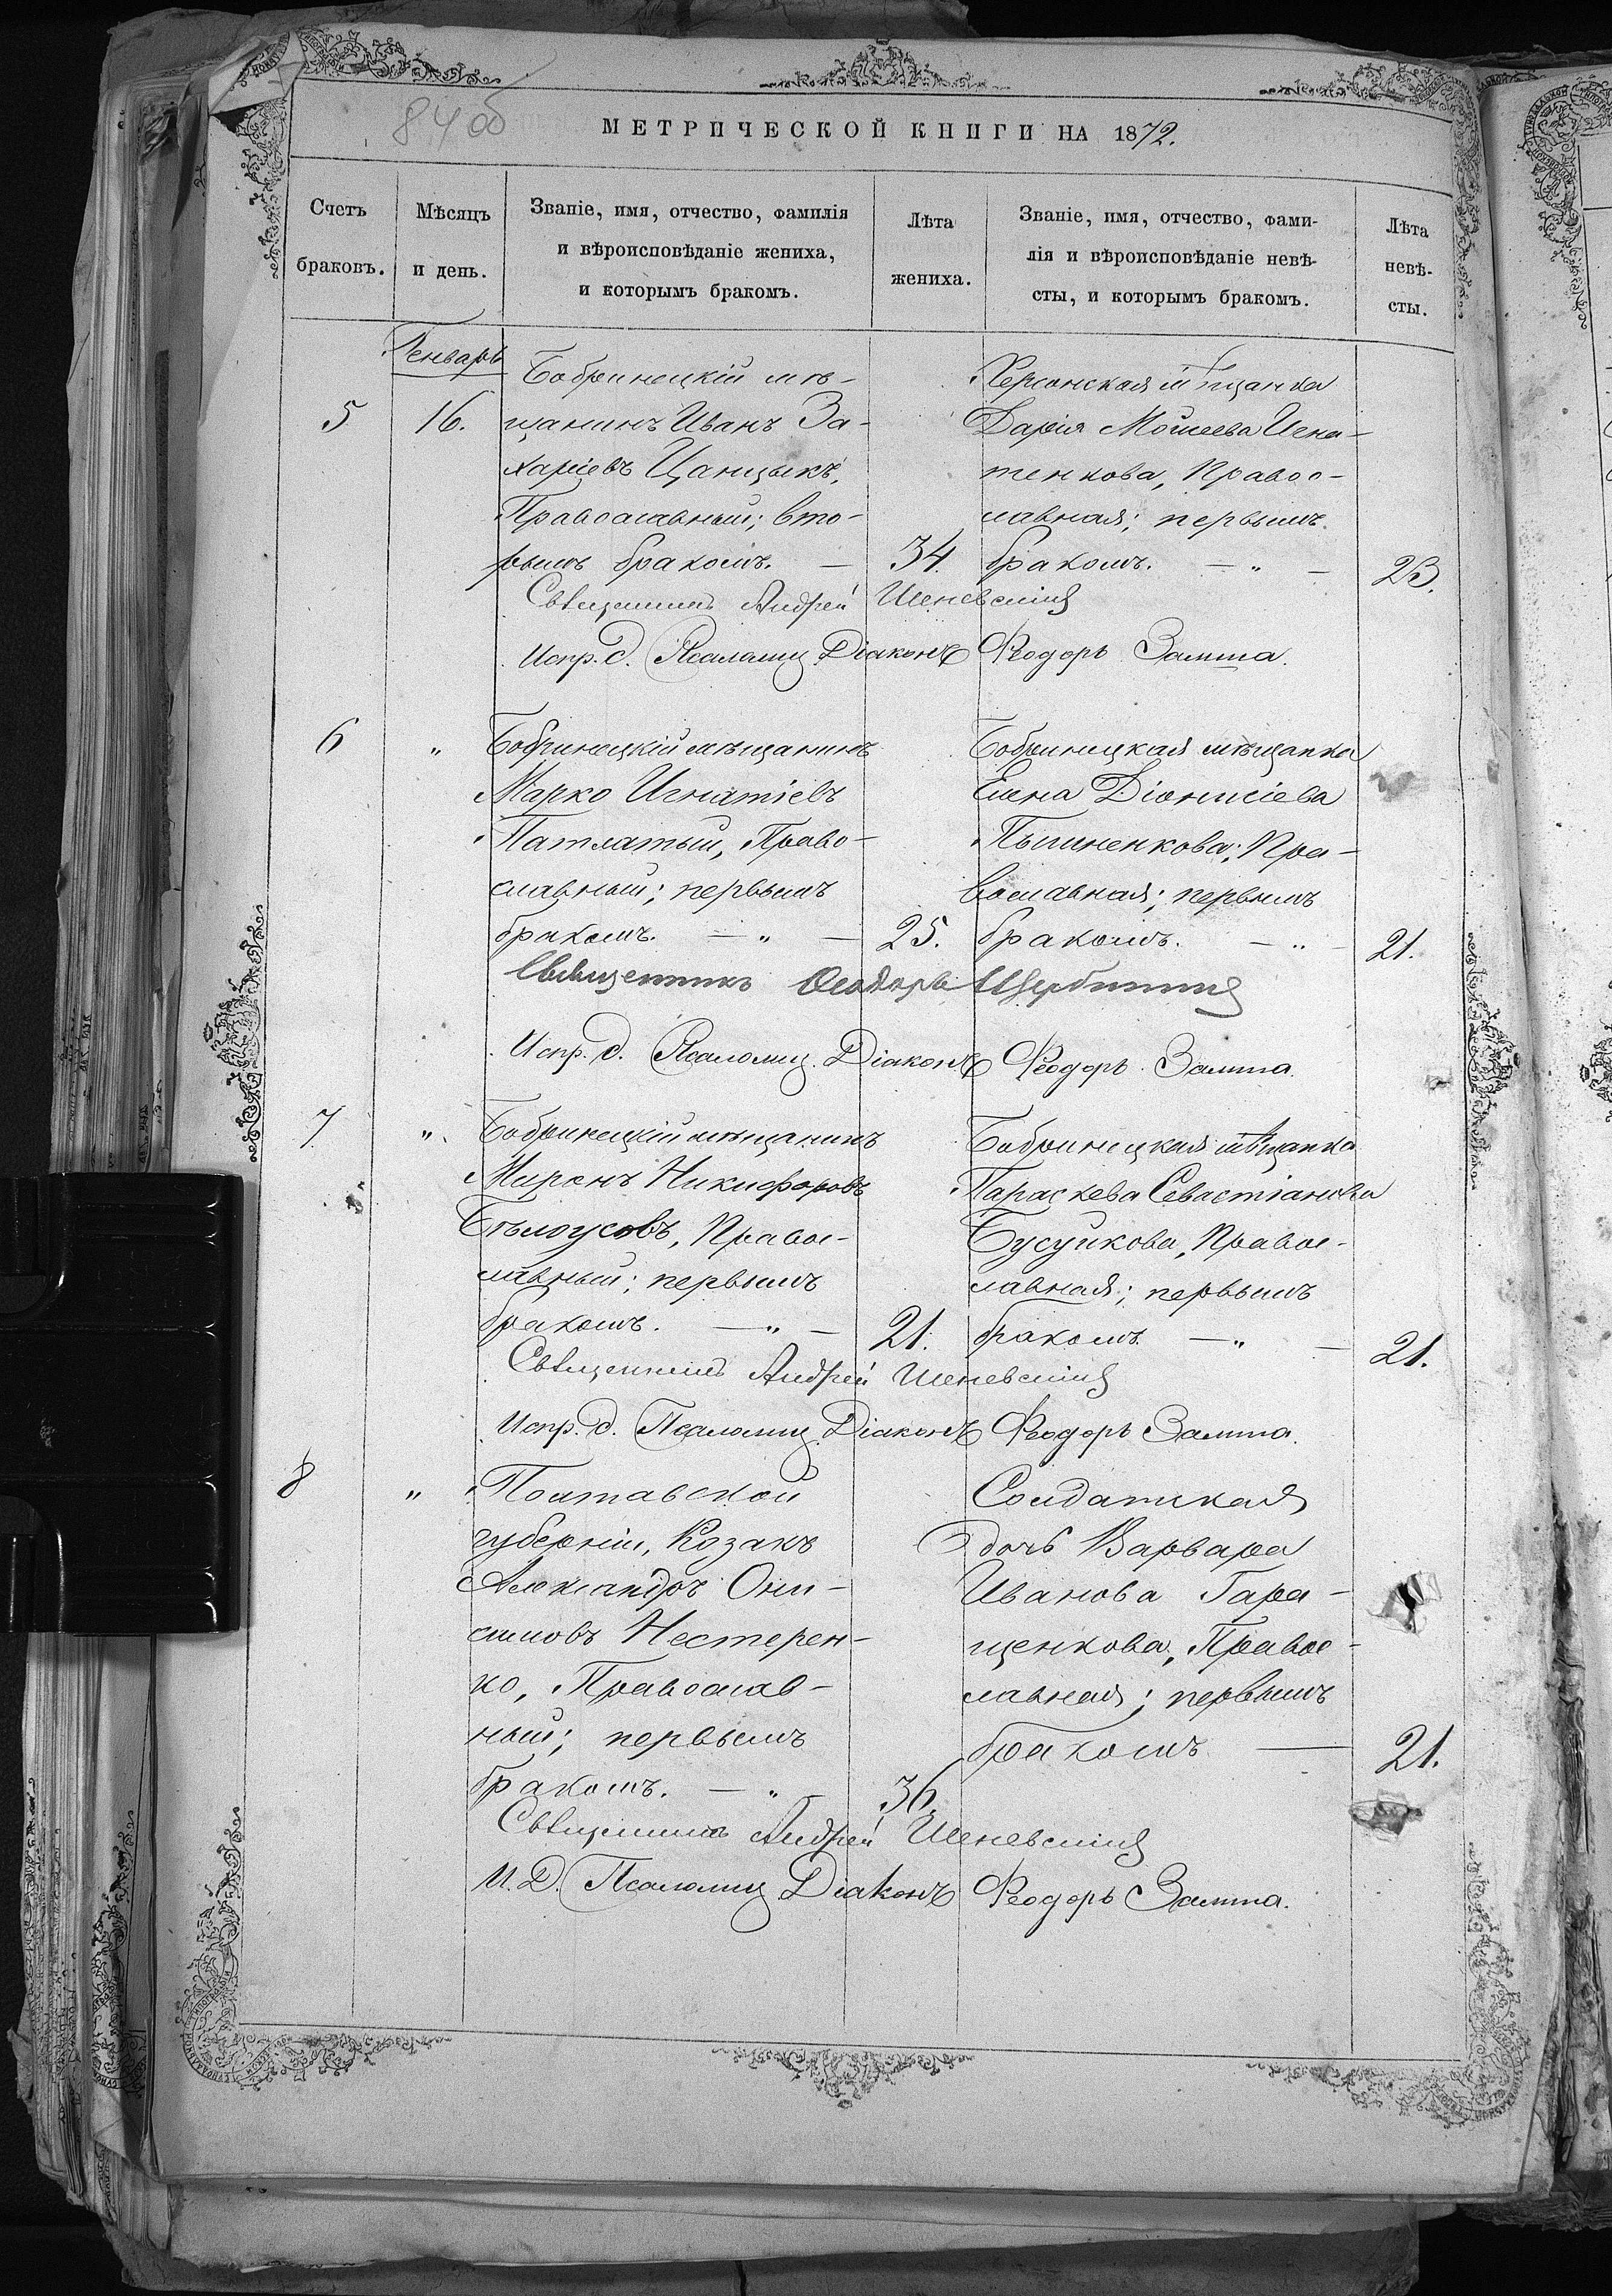 84 об
МЕТРИЧЕСКОЙ КНИГИ НА 1872.
Счетъ браковъ.
Мѣсяцъ и день.
Званіе, имя, отчество, фамилія
и вѣроисповѣданіе жениха,
и которымъ бракомъ.
Лѣта жениха.
Званіе, имя, отчество, фами-
лія и вѣроисповѣданіе невѣ-
сты, и которымъ бракомъ.
Лѣта невѣ-
сты.
Генварь
5
16.
Бобринецкій мѣ-
щанинъ Иванъ За-
харіевъ Цанцыкъ,
Православный; вто-
рымъ бракомъ. —
34.
Херсонская мѣщанка
Дарія Моисеева Игна-
тенкова, Правос-
лавная; первымъ
бракомъ. — „ —
23.
Священникъ Андрей
Испр. д. Псаломщ. Діаконъ Ѳеодоръ Замша.
6
„
Бобринецкій мѣщанинъ
Марко Игнатіевъ
Патлатый, Право-
славный; первымъ
бракомъ. — „ —
25.
Бобринецкая мѣщанка
Елена Діонисіева
Пышненкова; Пра-
вославная; первымъ
бракомъ. — „ —
21.
Священникъ Ѳеодоръ
Испр. д. Псаломщ. Діаконъ Ѳеодоръ Замша.
7
„
Бобринецкій мѣщанинъ
Миронъ Никифоровъ
Бѣлоусовъ, Правос-
лавный; первымъ
бракомъ. — „ —
21.
Бобринецкая мѣщанка
Параскева Севастіанова
Бусуйкова, Правос-
лавная; первымъ
бракомъ. — „ —
21.
Священникъ Андрей
Испр. д. Псаломщ. Діаконъ Ѳеодоръ Замша.
8
„
Полтавской
губерніи, Козакъ
Александръ Они-
симовъ Нестерен-
ко, Православ-
ный; первымъ
бракомъ. — „ —
36.
Солдатская
дочь Варвара
Иванова Гара-
щенкова, Правос-
лавная; первымъ
бракомъ —
21.
Священникъ Андрей
И. Д. Псаломщ Діаконъ Ѳеодоръ Замша.